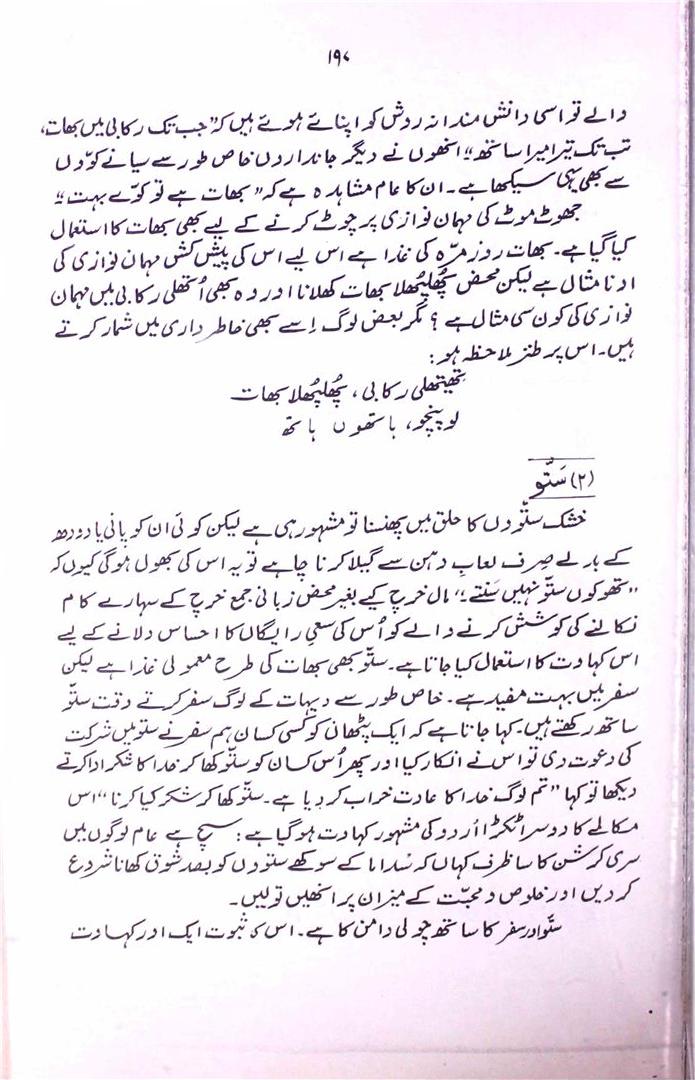 ۱۹۷
والے تو اسی دانش مندانہ روش کو اپنائے ہوئے ہیں کہ ”جب تک رکابی میں بھات،
تب تک تیرا میرا ساتھ“ انھوں نے دیگر جانداروں خاص طور سے سیانے کوّوں
سے بھی یہی سیکھا ہے۔ ان کا عام مشاہدہ ہے کہ ”بھات ہے تو کوّے بہت“
جھوٹ موٹ کی مہمان نوازی پر چوٹ کرنے کے لیے بھی بھات کا استعمال
کیا گیا ہے۔ بھات روز مرّہ کی غذا ہے اس لیے اس کی پیش کش مہمان نوازی کی
ادنا مثال ہے لیکن محض پُھلپُھلا بھات کھلانا اور وہ بھی اُتھلی رکابی میں مہمان
نوازی کی کون سی مثال ہے؟ مگر بعض لوگ اِسے بھی خاطرداری میں شمار کرتے
ہیں۔ اس پر طنز ملاحظہ ہو:
تھیتھلی رکابی، پُھلپُھلا بھات
لو پنچو، ہاتھوں ہاتھ
(۲) سَتّو
خشک ستّووں کا حلق میں پھنسنا تو مشہور ہی ہے لیکن کوئی ان کو پانی یا دودھ
کے بدلے صرف لعابِ دہن سے گیلا کرنا چاہے تو یہ اس کی بھول ہوگی کیوں کہ
”تھوکوں ستّو نہیں سَنتے“ مال خرچ کیے بغیر محض زبانی جمع خرچ کے سہارے کام
نکالنے کی کوشش کرنے والے کو اُس کی سعیِ رایگاں کا احساس دلانے کے لیے
اس کہاوت کا استعمال کیا جاتا ہے۔ ستّو بھی بھات کی طرح معمولی غذا ہے لیکن
سفر میں بہت مفید ہے۔ خاص طور سے دیہات کے لوگ سفر کرتے وقت ستّو
ساتھ رکھتے ہیں۔ کہا جاتا ہے کہ ایک پٹھان کو کسی کسان ہم سفر نے ستو میں شرکت
کی دعوت دی تو اس نے انکار کیا اور پھر اُس کسان کو ستّو کھا کر خدا کا شکر ادا کرتے
دیکھا تو کہا ”تم لوگ خدا کا عادت خراب کر دیا ہے۔ ستّو کھا کر شکر کیا کرنا“ اس
مکالمے کا دوسرا ٹکڑا اُردو کی مشہور کہاوت ہو گیا ہے: سچ ہے عام لوگوں میں
سری کرشن کا سا ظرف کہاں کہ سُداما کے سوکھے ستووں کو بصد شوق کھانا شروع
کر دیں اور خلوص و محبّت کے میزان پر انھیں تولیں۔
ستّو اور سفر کا ساتھ چولی دامن کا ہے۔ اس کا ثبوت ایک اور کہاوت